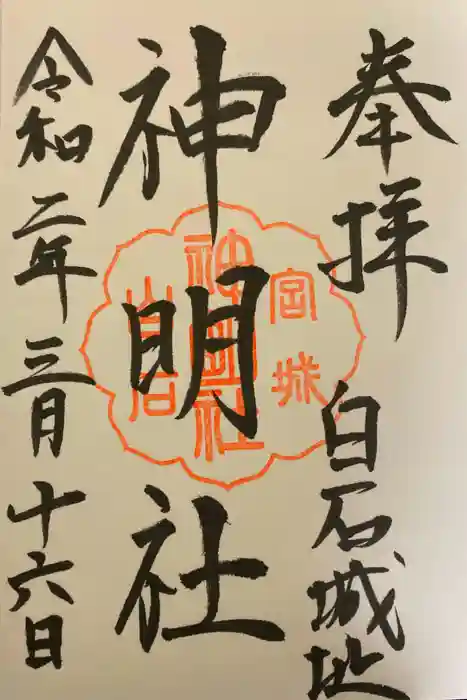 奉拝 白石城址
神明社
宮城
神明社
白石
令和二年三月十六日